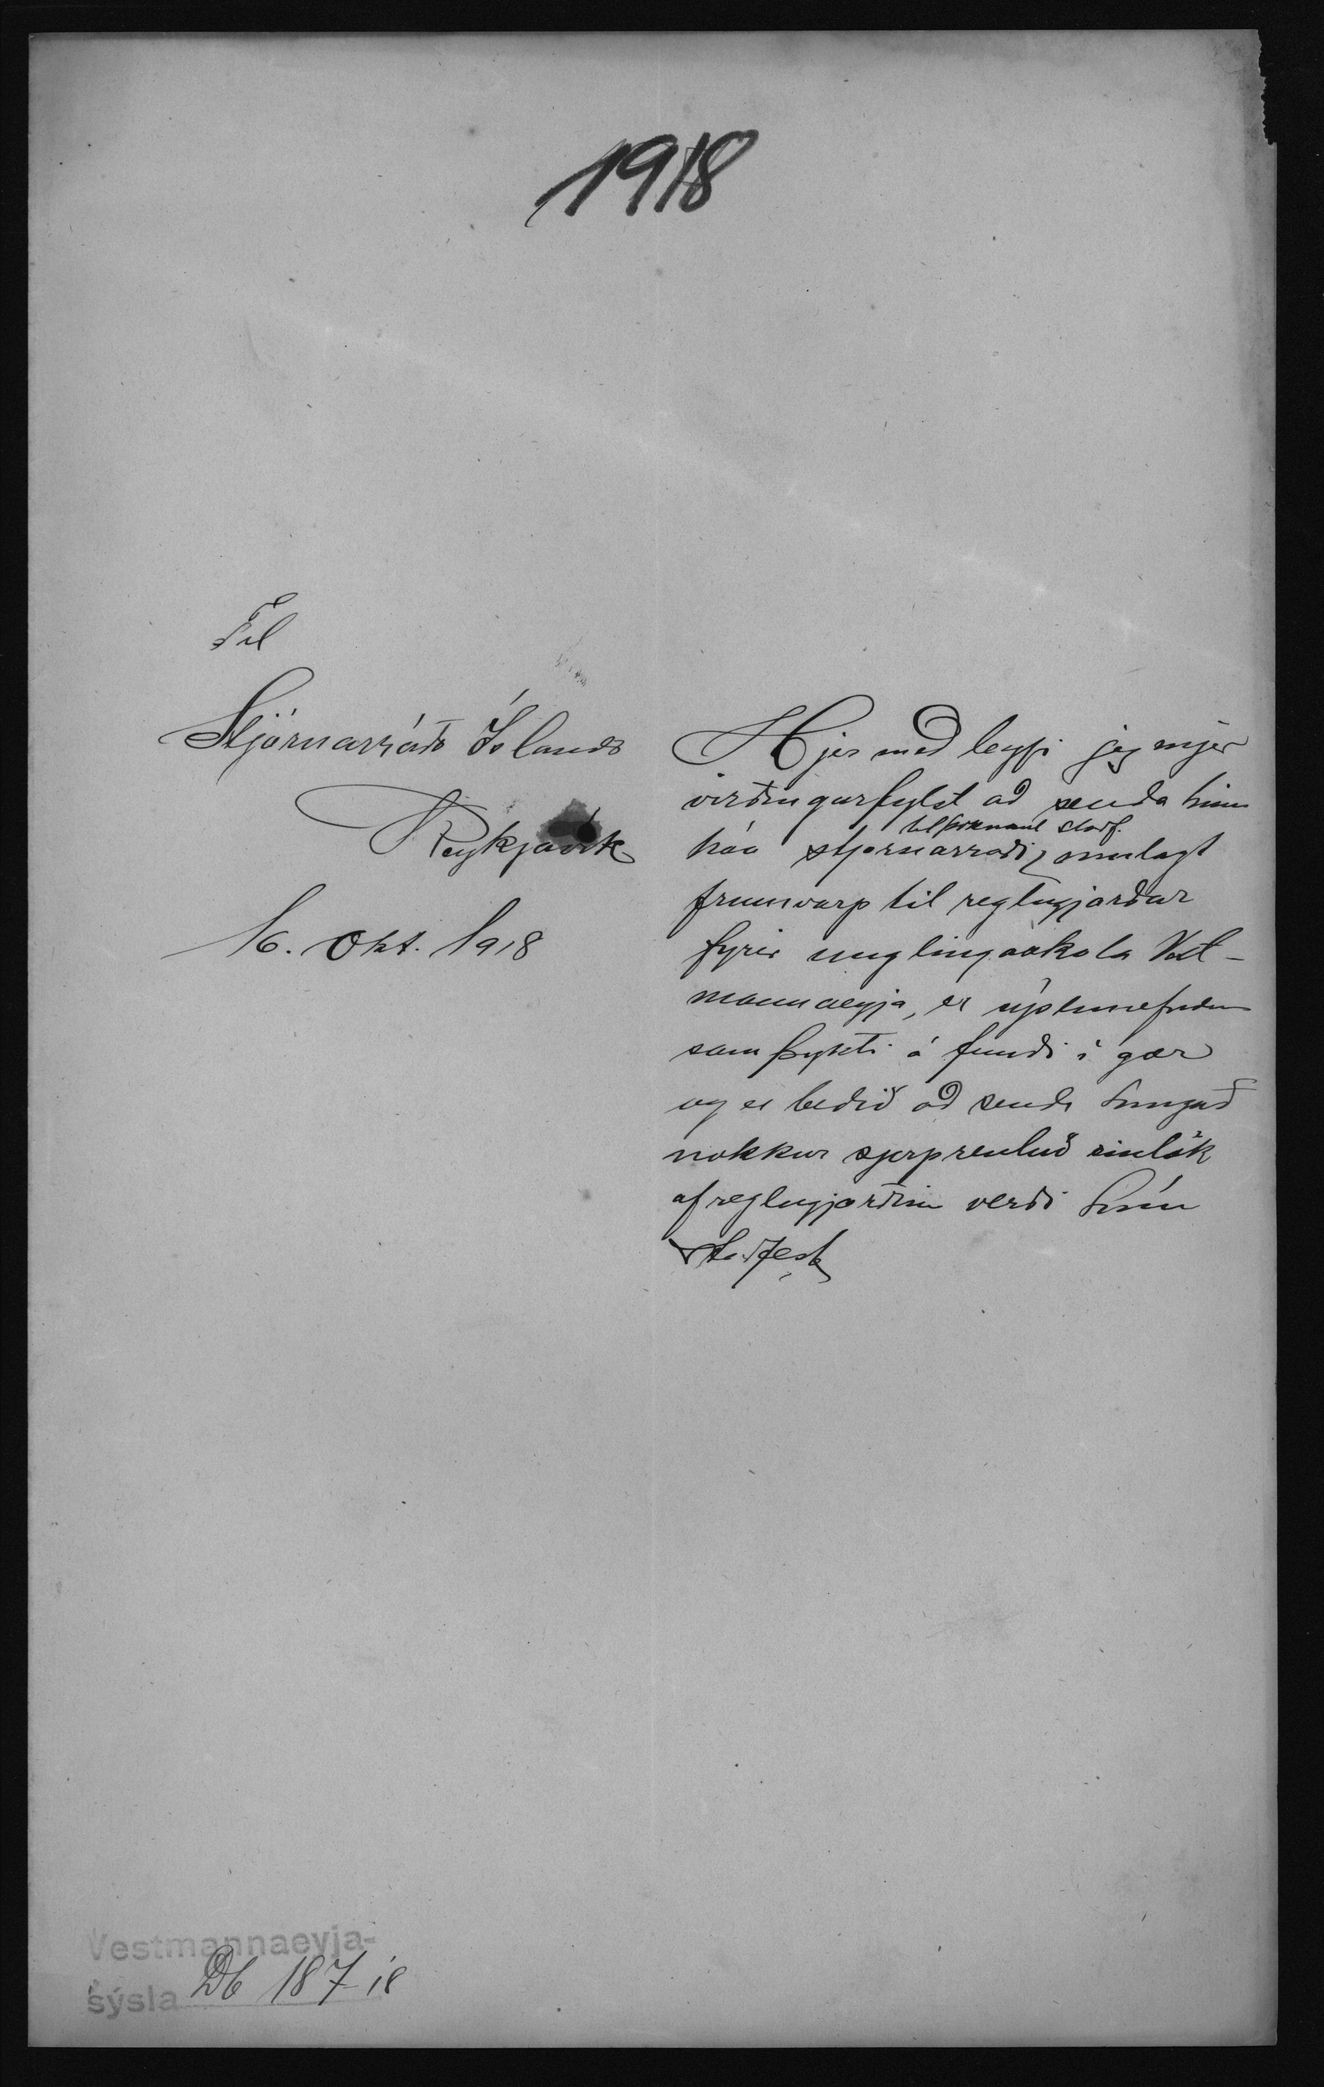 1918
Til
Stjórnarráðs Íslands
Reykjavík
16. Okt. 1918
Hjer með leyfi jeg mjer
virðingarfylst að senda hinu
til þóknanl. staðf.
háa stjórnarráði, innlagt
frumvarp til reglugjörðar
fyrir unglingaskóla Vest-
mannaeyja, er sýslunefndin
samþykti á fundi í gær
og er beðið að senda hingað
nokkur sjerprentuð eintök
af reglugjörðinni verði hún
staðfest
Vestmannaeyja-
sýsla Db 187-18